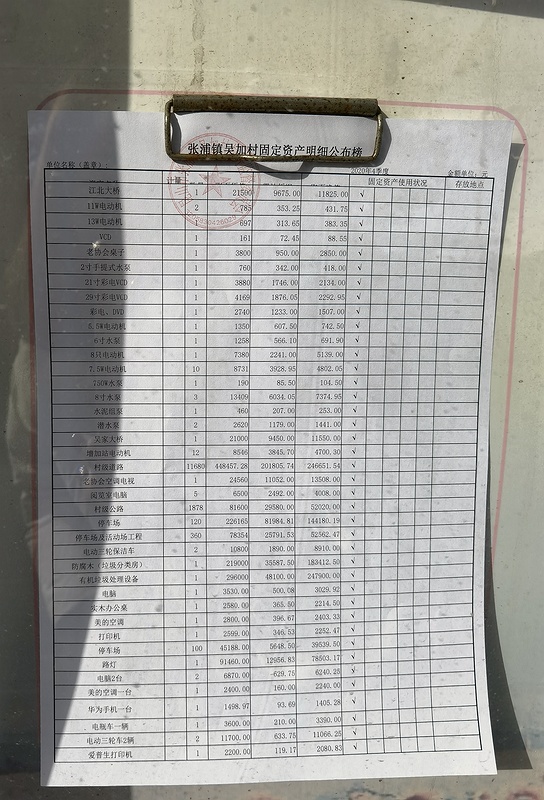 张浦镇吴加村固定资产明细公布榜
单位名称（盖章）： 2020年4季度 金额单位：元
计量 固定资产使用状况 存放地点
江北大桥 1 21500 9675.00 11825.00 √
11W电动机 2 785 353.25 431.75 √
13W电动机 1 697 313.65 383.35 √
VCD 1 161 72.45 88.55 √
老协会桌子 1 3800 950.00 2850.00 √
2寸手提式水泵 1 760 342.00 418.00 √
21寸彩电VCD 1 3880 1746.00 2134.00 √
29寸彩电VCD 1 4169 1876.05 2292.95 √
彩电、DVD 1 2740 1233.00 1507.00 √
5.5W电动机 1 1350 607.50 742.50 √
6寸水泵 1 1258 566.10 691.90 √
8只电动机 1 7380 2241.00 5139.00 √
7.5W电动机 10 8731 3928.95 4802.05 √
750W水泵 1 190 85.50 104.50 √
8寸水泵 3 13409 6034.05 7374.95 √
水泥组泵 1 460 207.00 253.00 √
潜水泵 2 2620 1179.00 1441.00 √
吴家大桥 1 21000 9450.00 11550.00 √
增加站电动机 12 8546 3845.70 4700.30 √
村级道路 11680 448457.28 201805.74 246651.54 √
老协会空调电视 1 24560 11052.00 13508.00 √
阅览室电脑 5 6500 2492.00 4008.00 √
村级公路 1878 81600 29580.00 52020.00 √
停车场 120 226165 81984.81 144180.19 √
停车场及活动场工程 360 78354 25791.53 52562.47 √
电动三轮保洁车 2 10800 1890.00 8910.00 √
防腐木（垃圾分类房） 1 219000 35587.50 183412.50 √
有机垃圾处理设备 1 296000 48100.00 247900.00 √
电脑 1 3530.00 500.08 3029.92 √
实木办公桌 1 2580.00 365.50 2214.50 √
美的空调 1 2800.00 396.67 2403.33 √
打印机 1 2599.00 346.53 2252.47 √
停车场 100 45188.00 5648.50 39539.50 √
路灯 1 91460.00 12956.83 78503.17 √
电脑2台 2 6870.00 -629.75 6240.25 √
美的空调一台 1 2400.00 160.00 2240.00 √
华为手机一台 1 1498.97 93.69 1405.28 √
电瓶车一辆 1 3600.00 210.00 3390.00 √
电动三轮车2辆 2 11700.00 633.75 11066.25 √
爱普生打印机 1 2200.00 119.17 2080.83 √